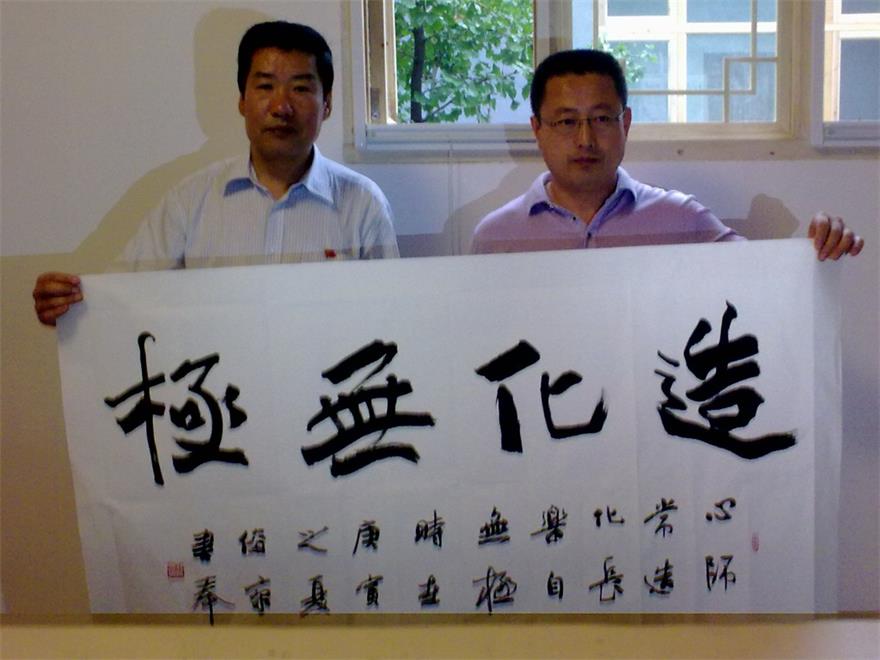 造化無極
心師
常造
化長
樂自
無極
時在
庚寅
之夏
書奉